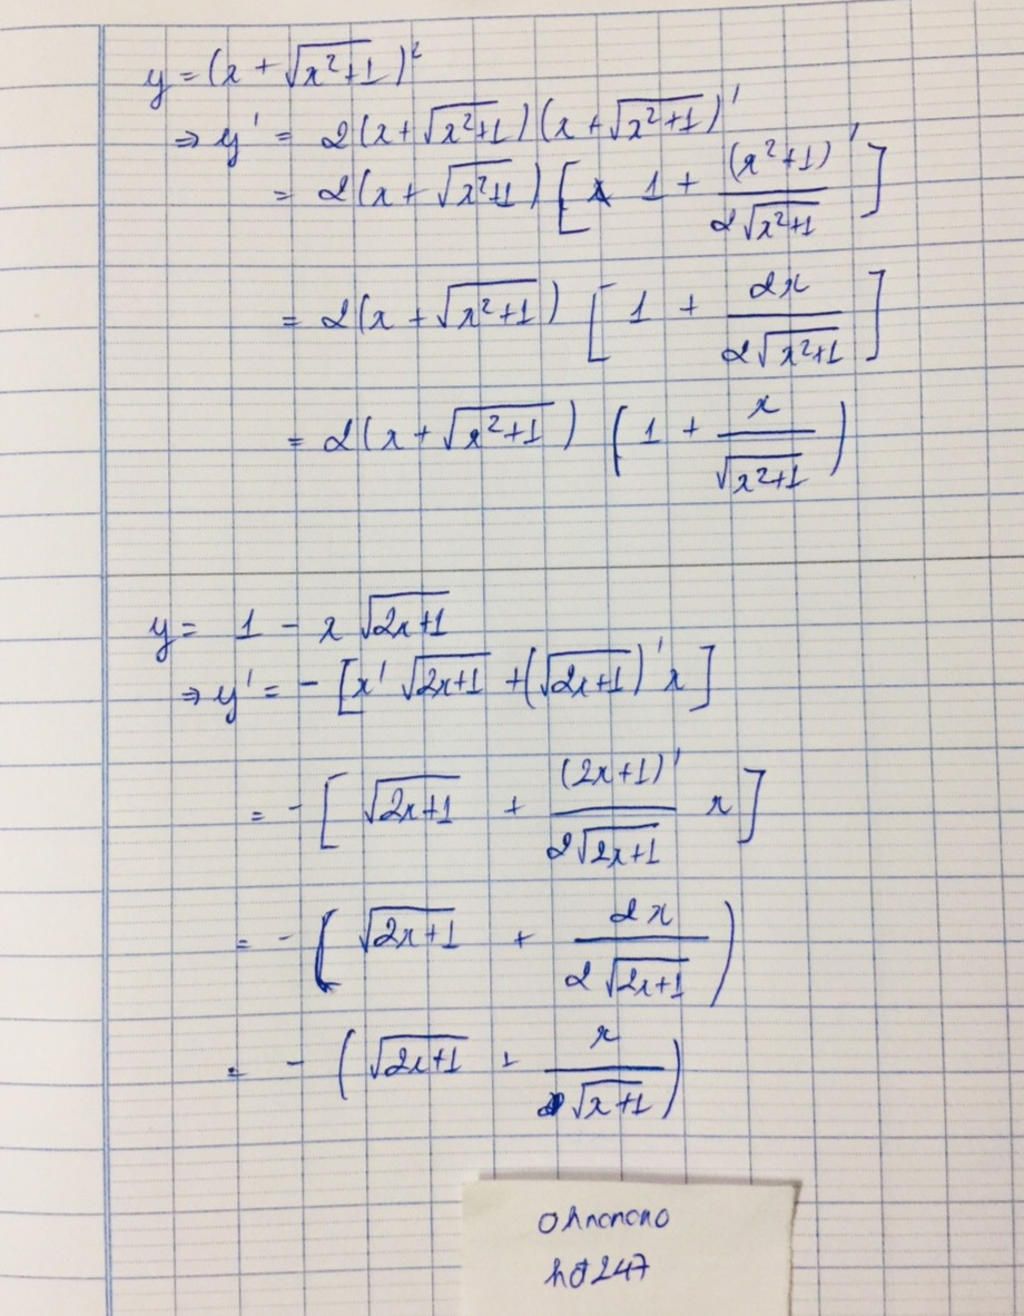 y = (x + √(x²+1))²
⇒ y' = 2(x + √(x²+1)) (x + √(x²+1))'
= 2(x + √(x²+1)) [ 1 + (x²+1)' / (2√(x²+1)) ]
= 2(x + √(x²+1)) [ 1 + 2x / (2√(x²+1)) ]
= 2(x + √(x²+1)) ( 1 + x / √(x²+1) )
y = 1 - x √(2x+1)
⇒ y' = - [x' √(2x+1) + (√(2x+1))' x ]
= - [ √(2x+1) + (2x+1)' / (2√(2x+1)) x ]
= - ( √(2x+1) + 2x / (2√(2x+1)) )
= - ( √(2x+1) + x / √(x+1) )
ohnonono
hd247